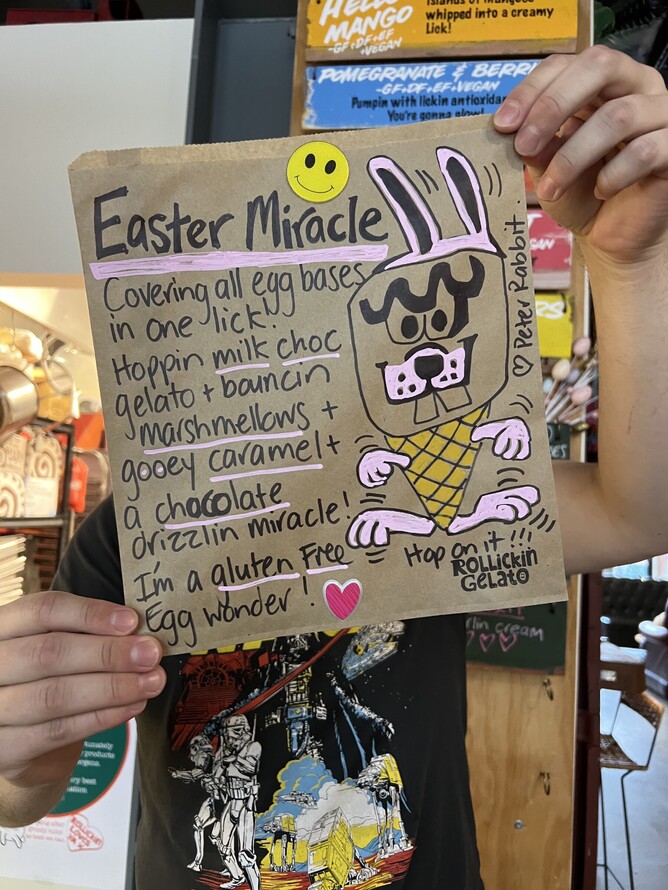 HELLO
MANGO
-GF+DF+EF
+VEGAN
Islands of Mangoes
whipped into a creamy
Lick!
POMEGRANATE & BERRI
-GF+DF+EF+VEGAN
Pumpin with lickin antioxidan
You're gonna glow!
Easter Miracle
Covering all egg bases
in one lick!
Hoppin milk choc
gelato + bouncin
marshmellows +
gooey caramel +
a chocolate
drizzlin miracle!
I'm a gluten Free
Egg wonder!
♡ Peter Rabbit.
Hop on it!!!
ROLLickin
GELatO
rlin cream